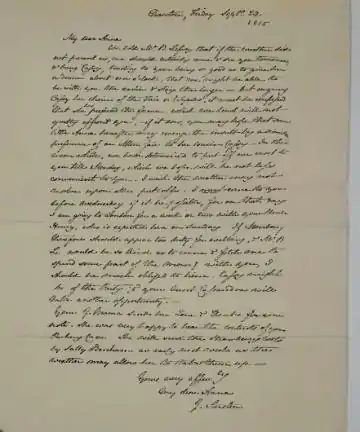 Chawton, Friday Sept. 29.
1815
My dear Anna
We told Mr. B. Lefroy that if the weather did
not prevent us, we should certainly come & see you tomorrow,
& bring Cassy, trusting to your being so good as to give her
a dinner about one o'clock, that we might be able to
be with you the earlier & stay the longer - but on giving
Cassy her choice of the Fair or
that she has preferred the
greatly affront you; - if it does, you may hope that some
little Anna hereafter may revenge the insult by a similar
preference of an Alton fair to her Cousin Cassy. - In the
meanwhile, we have determined to put off our visit to
you till Monday, which we hope will be not less
convenient to you. - I wish the weather may not
resolve upon other put-offs. I must come to you
before Wednesday if it be possible, for on that day
I am going to London for a week or two with your Uncle
Henry, who is expected here on Sunday. If Monday
therefore should appear too dirty for walking, & Mr. B.
L. would be so kind as to come & fetch me to
spend some part of the morng. with you, I
should be much obliged to him. Cassy might
be of the Party, & your Aunt Cassandra will
take another opportunity. -
Your G. Mama sends her Love & Thanks for your
note. She was very happy to hear the contents of your
Packing Case. She will send the Strawberry roots
by Sally Benham, as early next week as the
weather may allow her to take them up. -
Yours very affecly
My dear Anna
J. Austen